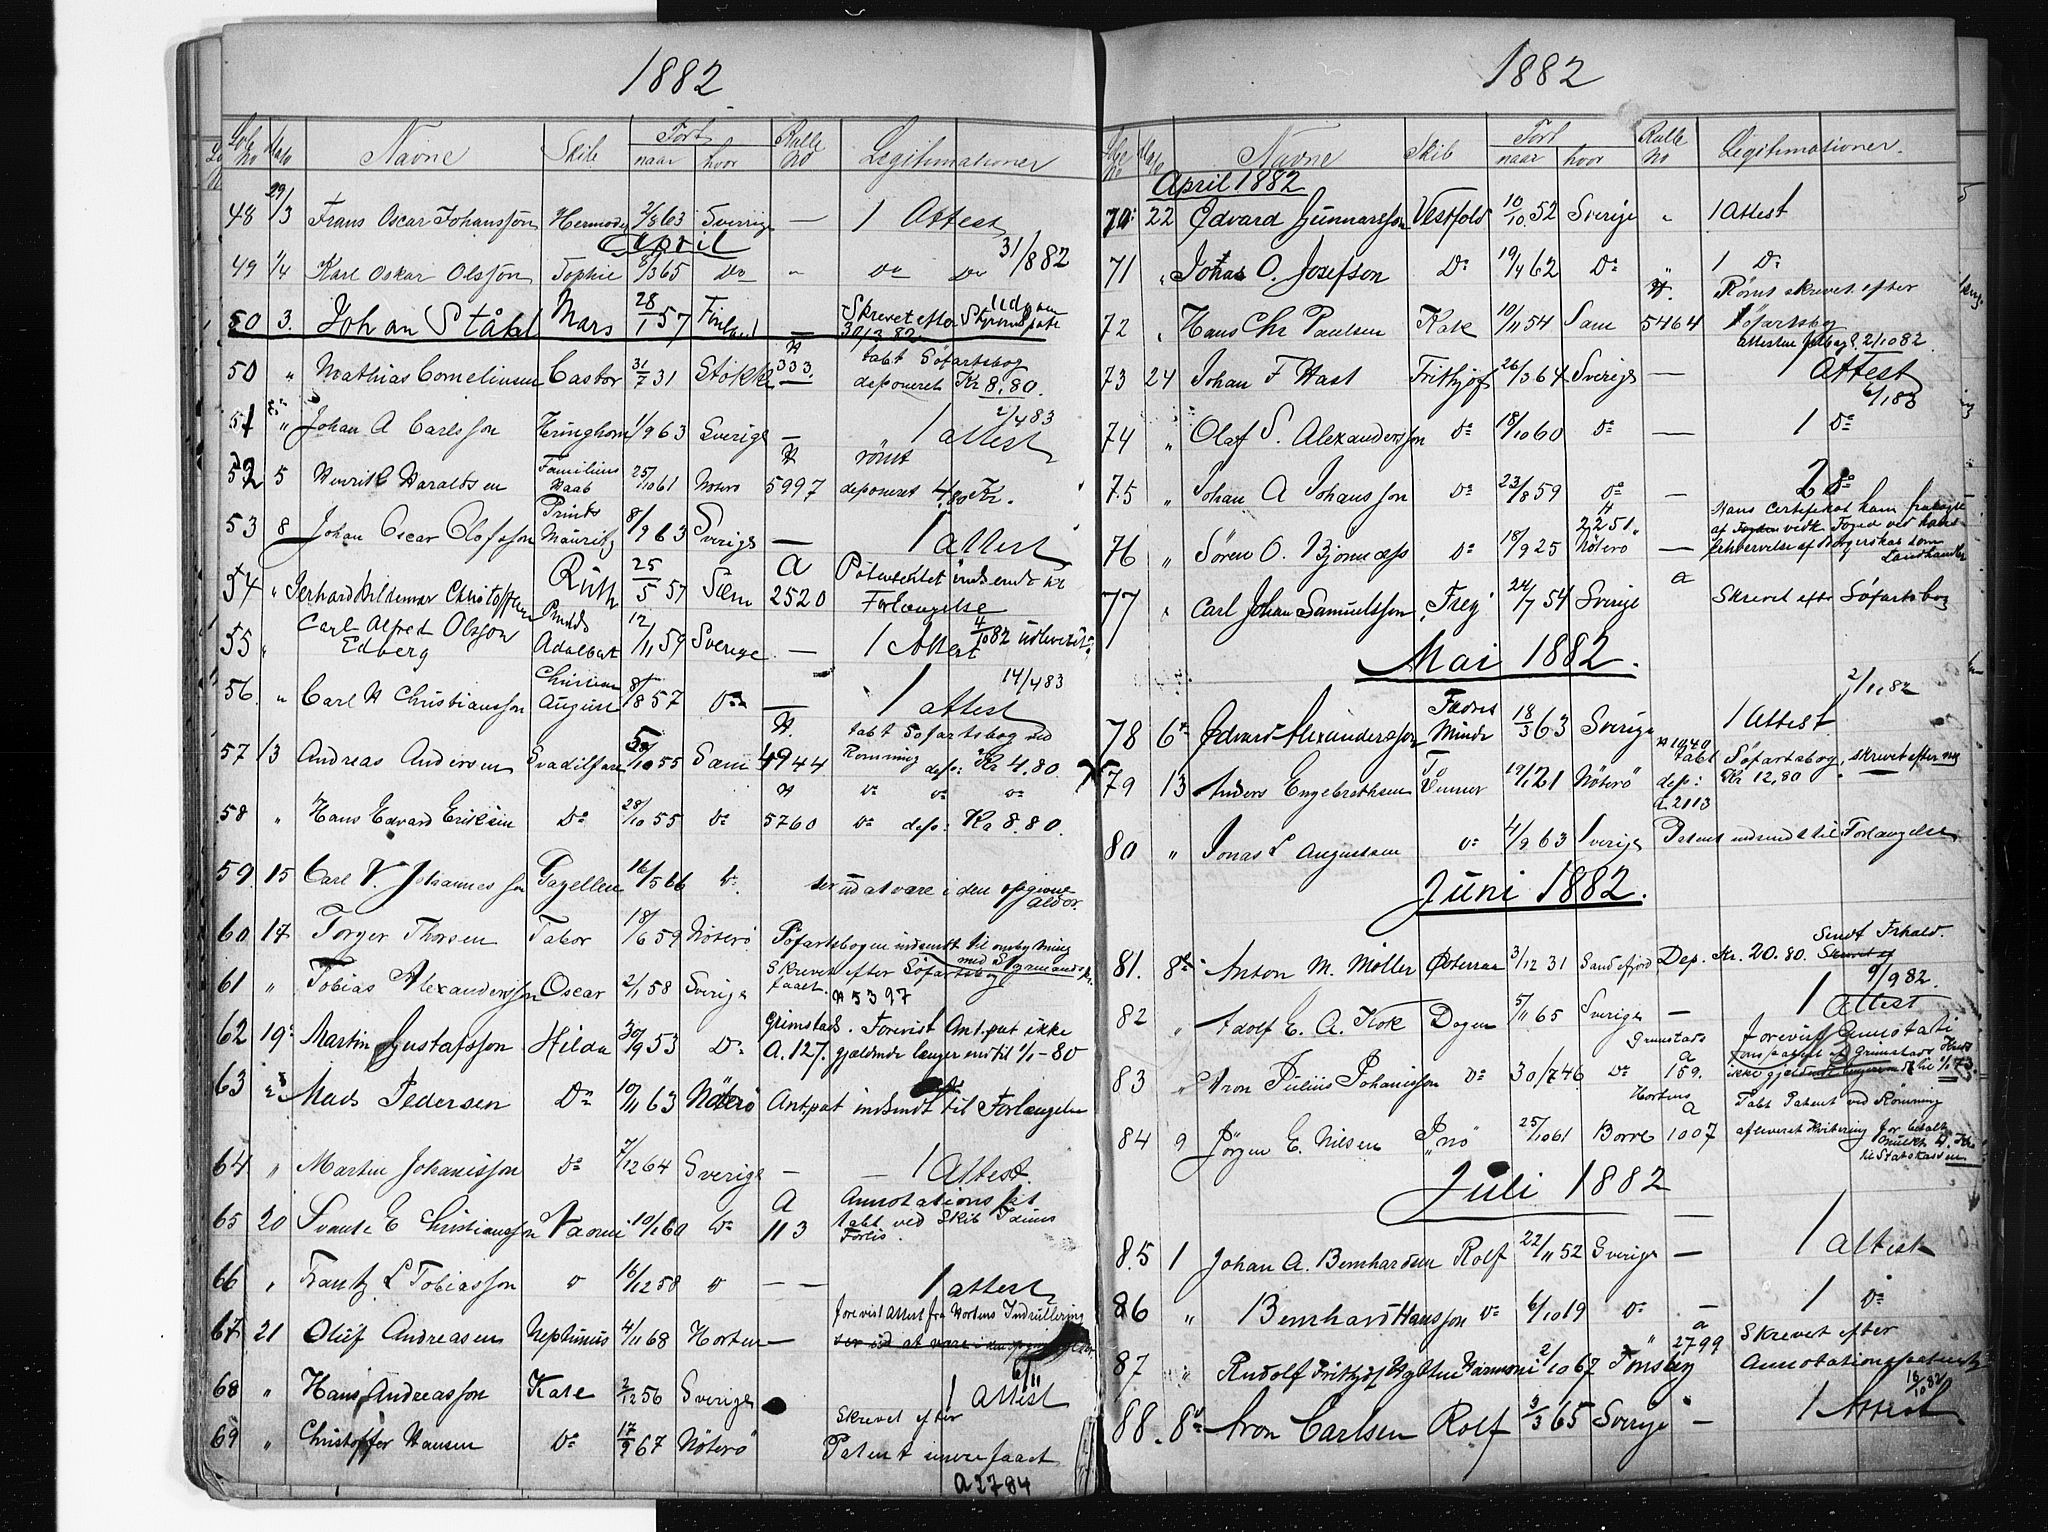 1882
Løb No Dato Navne Skib Født naar hvor Rulle No Legitimationer
48 29/3 Frans Oscar Johansson Hermod 2/8 63 Sverrig — 1 Attest
April 31/8 82
49 1/4 Karl Oskar Olsson Sophie 8/3 65 Do " Do Do
50 3. Johan Ståhl Mars 28/1 57 Finland — Skrevet efter Styrmandspat 30/3 82
50 " Mathias Corneliusen Castor 31/7 31 Stokke H 333. tabt Söfartsbog deponeret Kr 8,80.
2/4 83
51 " Johan A Carlsson Heringhorn 1/9 63 Sverige — 1 attest
52 5 Henrik Haraldsen Familiens Haab 25/10 61 Nöterö H 5997 römt deponeret 4,80 Kr.
53 8 Johan Oscar Olofsson Prinds Mauritz 8/9 63 Sverige — 1 attest
54 " Gerhard Hildemar Christoffersen Ruth 25/5 57 Sæm A 2520 Patentet indsendt til Forlængelse
55 " Carl Alfred Olsson Edberg Prinds Adalbert 12/11 59 Sverige — 1 Attest 4/10 82 udleveret
14/4 83
56. " Carl H Christiansson Christian August 8/8 57 Do — 1 attest
57 13 Andreas Andersen Svadilfare 5/10 55 Sæm H. 4944 tabt Söfartsbog ved Romning dep: Kr 4.80
58 " Hans Edvard Eriksen Do 28/10 55 Do H 5760 Do Do Do Do dep: Kr 8.80.
59. 15 Carl V. Johannesson Gazellen 16/5 66 Do ser ud at være i den opgivne alder.
60 17 Torger Thorsen Tabor 18/6 59 Nöterö Söfartsbogen indsendt til ombytning med Styrmands
61 " Tobias Alexandersson Oscar 2/1 58 Sverige Skrevet efter Söfartsbog faaet. H 5397
62 19 Martin Gustafsson Hilda 30/9 53 Do Grimstad. Forevist Ant.pat ikke A. 127. gjældende længer end til 1/1-80
63 " Mads Pedersen Do 10/11 63 Nöterö Ant.pat indsendt til Forlængelse
64 " Martin Johanisson Do 7/12 64 Sverige — — 1 Attest.
65 20 Svante E Christiansson Vaarin 10/1 60 Do A 113 Annotations pt tabt ved Skib Forlis
66 " Frantz L Tobiasson " 16/12 58 " — — 1 attest
67 21 Oluf Andreasen Neptunus 4/11 68 Horten — forevist Attest fra Hortens Indrullering
ser ud at være i den opgivne alder
68 " Hans Andreasson Kate 2/12 56 Sverige 1 Attest
69 " Christoffer Hansen Do 17/9 67 Nöterö Skrevet efter Patent faaet
A 2784
1882
Løbe No Dato Navne Skib Født naar hvor Rulle No Legitimationer.
April 1882
70 22 Edvard Gunnarsson Vestfold 10/10 52 Sverige " 1 Attest
71 " Johas O. Josefson Do 19/4 62 Do " 1 Do
72 " Hans Chr Paulsen Kate 10/11 54 Sæm H. 5464 Römt skrevet efter Söfartsbog 2/10 82.
73 24 Johan F Hast Frithjof 26/3 64 Sverige — 1 Attest
6/1 83
74 " Olaf S. Alexandersson Do 18/10 60 Do — 1 Do
75 " Johan A Johansson Do 23/8 59 Do — 2 Do
76 " Sören O. Bjonness Do 18/9 25 Nöterö H 2251 — Hans Certifikat ham frataget af Foged ved hans Erhvervelse af Borgerskab som Landhandler
77 " Carl Johan Samuelsson Frey 24/7 54 Sverige a Skrevet efter Söfartsbog
Mai 1882.
2/11 82
78 6 Edvard Alexandersson Fædres Minde 18/3 63 Sverige 1 Attest
79 13 Anders Engebrethsen To Venner 19/1 21 Nöterö H 1040 tabt Söfartsbog, skrevet efter dep: Kr 12,80
a 2113
80 " Jonas L Augustsen Do 4/9 63 Sverige Patent indsendt til Forlængelse
Juni 1882.
81. 8 Anton M. Möller Østerraa 3/12 31 Sandefjord Dep. Kr. 20.80. Sendt Frhald.
9/9 82.
82 " Adolf E. A. Kok Dagen 5/11 65 Sverige — 1 Attest
83 " Aron Julius Johanisson Do 30/7 46 Do Grimstads a 159. Forevist Annotationspatent af Grimstads Kreds ikke gjeldende længer end til 1/1 73.
84 9 Jørgen E. Nilsen Jnö 25/10 61 Borre Hortens a 1007 Tabt Patent ved Römning afleveret Kvitering for betalt mulkt 4 Kr til Statskassen
Juli 1882
85 1 Johan A. Bernhardsen Rolf 22/11 52 Sverige — 1 Attest
86 " Bernhard Hansson Do 6/10 19 Do — 1 Do
87 " Rudolf Frithjof Hytten Harmoni 2/10 67 Tønsberg a 2799 Skrevet efter Annotationspatent
18/10 82
88. 8 Aron Carlsen Rolf 3/3 65 Sverige — 1 Attest